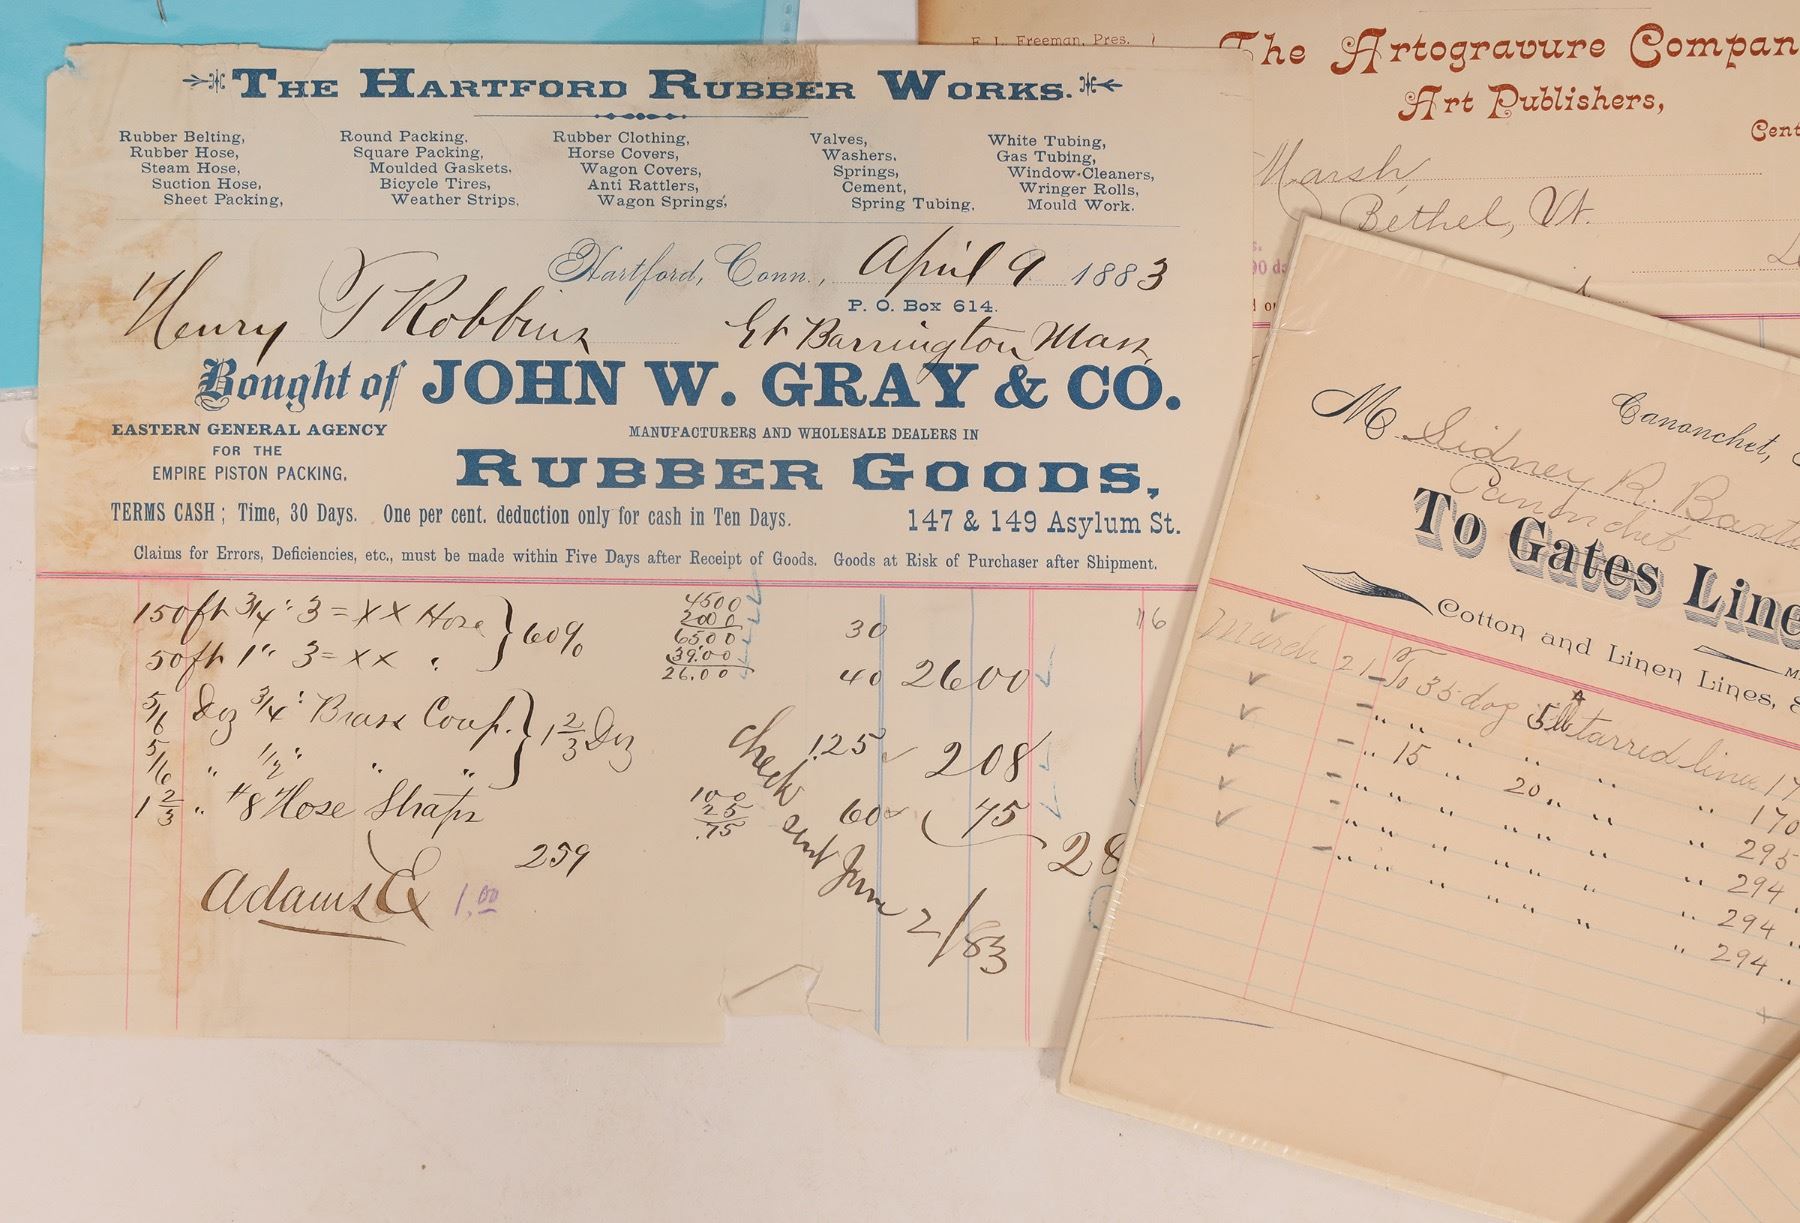 THE HARTFORD RUBBER WORKS.
Rubber Belting,
Rubber Hose,
Steam Hose,
Suction Hose,
Sheet Packing,
Round Packing,
Square Packing,
Moulded Gaskets,
Bicycle Tires,
Weather Strips,
Rubber Clothing,
Horse Covers,
Wagon Covers,
Anti Rattlers,
Wagon Springs,
Valves,
Washers,
Springs,
Cement,
Spring Tubing,
White Tubing,
Gas Tubing,
Window-Cleaners,
Wringer Rolls,
Mould Work.
Hartford, Conn., April 9 1883
P. O. Box 614.
Henry T Robbins Gt Barrington Mass.
Bought of JOHN W. GRAY & CO.
EASTERN GENERAL AGENCY
FOR THE
EMPIRE PISTON PACKING.
MANUFACTURERS AND WHOLESALE DEALERS IN
RUBBER GOODS,
TERMS CASH; Time, 30 Days. One per cent. deduction only for cash in Ten Days. 147 & 149 Asylum St.
Claims for Errors, Deficiencies, etc., must be made within Five Days after Receipt of Goods. Goods at Risk of Purchaser after Shipment.
150 ft 3/4" 3 = XX Hose } 60% 30
50 ft 1" 3 = XX " 40 2600
4500
2000
6500
39.00
26.00
5/6 Doz 3/4" Brass Coup. } 1 2/3 Doz 1.25 208
5/6 " 1/2" " "
1 2/3 " #8 Hose Straps 60 75
100
25
.75
28
259
Adams Ex 1.00
check sent June 2/83
16
F. L. Freeman, Pres.
The Artogravure Compan
Art Publishers,
Cent
Marsh,
Bethel, Vt.
90 d
Canonchet,
M Sidney R. Baxt
Canonchet
To Gates Line
Cotton and Linen Lines, &
March 21 To 35 dog 5 lb tarred line 17
" " " " " " 170
" 15 " 20 " " " 295
" " " " " " 294 "
" " " " " " 294 "
" " " " " " 294 "